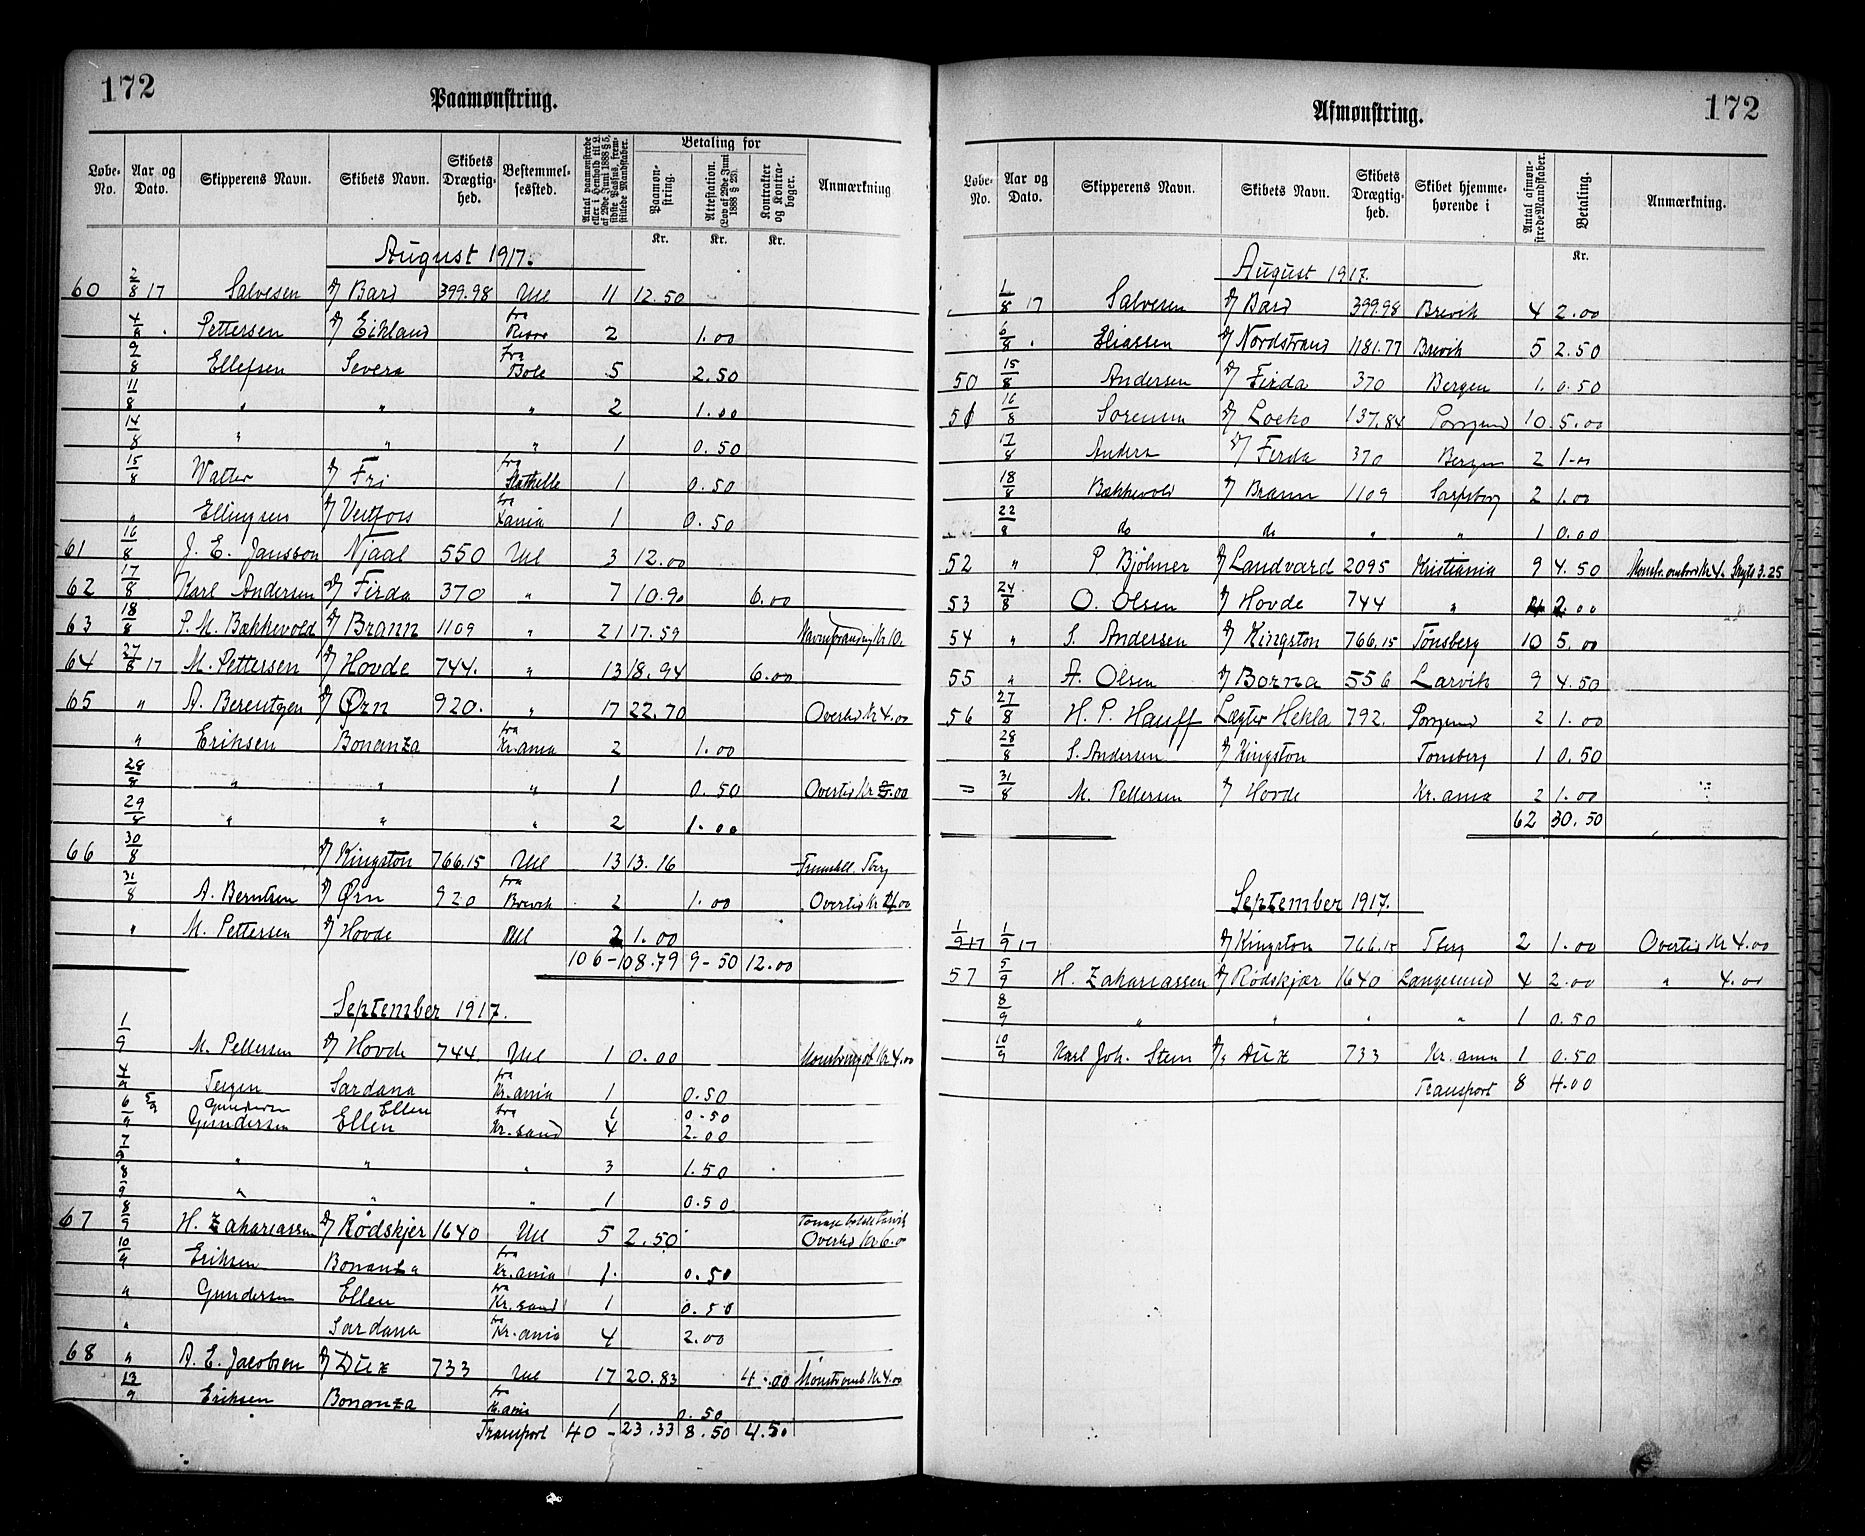 172
Paamønstring.
Løbe-No.
Aar og Dato.
Skipperens Navn.
Skibets Navn.
Skibets Drægtig-hed.
Bestemmel-sessted.
Antal paamønstrede eller i Henhold til L. af 29de Juni 1888 § 5, sidste Passus, frem-stillede Mandskaber.
Betaling for
Paamøn-string.
Attestation. (Lov af 29de Juni 1888 § 23).
Kontrakter og Kontra-bøger.
Anmærkning
Kr. Kr. Kr.
August 1917.
60 2/8 17 Salvesen D/ Bard 399.98 Ull 11 12.50
4/8 Pettersen D/ Eikland fra 2 1.00
9/8 Ellefsen Severa fra Bole 5 2.50
11/8 " " " 2 1.00
14/8 " " " 1 0.50
15/8 Walter D/ Fri fra Stathelle 1 0.50
" Ellingsen D/ Vestfoss fra Kania 1 0.50
61 16/8 J. E. Jansson Njaal 550 Ull 3 12.00
62 17/8 Karl Andersen D/ Firda 370 " 7 10.90 6.00
63 18/8 P. M. Bækkevold D/ Brann 1109 " 21 17.59
64 27/8 17 M. Pettersen D/ Hovde 744. " 13 18.94 6.00
65 " A. Berentzen D/ Ørn 920. " 17 22.70 Overtid Kr 4.00
" Eriksen Bonanza fra Kr.ania 2 1.00
28/8 " " " 1 0.50 Overtid Kr .00
29/8 " " " 2 1.00
66 30/8 D/ Kingston 766.15 Ull 13 13.16 Fremstill. Tbrg
31/8 A. Berntsen D/ Ørn 920 fra Brevik 2 1.00 Overtid Kr 4.00
" M. Pettersen D/ Hovde Ull 2 1.00
106 - 108.79 9-50 12.00
September 1917.
1/9 M. Pettersen D/ Hovde 744. Ull 1 0.00 Kr 4.00
4/9 Teigen Sardana fra Kr.ania 1 0.50
5/9 Gundersen Ellen 1 0.50
6/9 Gundersen Ellen fra Kr.sand 4 2.00
7/9 " " " 3 1.50
8/9 " " " 1 0.50
67 8/9 H. Zakariassen D/ Rødskjer 1640 Ull 5 2.50 Overtid Kr 6.0
10/9 Eriksen Bonanza fra Kr.ania 1. 0.50
" Gundersen Ellen fra Kr.sand 1 0.50
" Sardana fra Kr.ania 4 2.00
68 " A. E. Jacobsen D/ Dux 733 Ull 17 20.83 4.00 Mønst. omb Kr 4.00
13/9 Eriksen Bonanza fra Kr.ania 1 0.50
Transport 40 - 23.33 8.50 4.50
172
Afmønstring.
Løbe-No.
Aar og Dato.
Skipperens Navn.
Skibets Navn.
Skibets Drægtig-hed.
Skibet hjemme-hørende i
Antal afmøn-strede Mandskaber.
Betaling.
Anmærkning.
Kr.
August 1917.
1/8 17 Salvesen D/ Bard 399.98 Brevik 4 2.00
6/8 Eliassen D/ Nordstrand 1181.77 Brevik 5 2.50
50 15/8 Andersen D/ Firda 370 Bergen 1. 0.50
51 16/8 Sorensen D/ Loeko 137.84 Porsgrund 10 5.00
17/8 Anders D/ Firda 370 Bergen 2 1-00
18/8 Bækkevold D/ Brann 1109 Sarpsborg 2 1.00
22/8 do do " " 1 0.00
52 " P Bjølmer D/ Landvard 2095 Kristiania 9 4.50 Mønstr. ombord Kr 4. Skyds 3.25
53 24/8 O. Olsen D/ Hovde 744 " 4 2.00
54 " S. Andersen D/ Kingston 766.15 Tönsberg 10 5.00
55 " A. Olsen D/ Borna 556 Larvik 9 4.50
56 27/8 H. P. Hauff Lægter Hekla 792. Porsgrund 2 1.00
28/8 S. Andersen D/ Kingston Tonsberg 1 0.50
31/8 M. Pettersen D/ Hovde Kr.ania 2 1.00
62 30.50
September 1917.
1/9 17 1/9 17 D/ Kingston 766.15 Tberg 2 1.00 Overtid Kr 4.00
57 5/9 H. Zakariassen D/ Rødskjær 1640 Langesund 4 2.00 " 4.00
8/9 " " " " 1 0.50
10/9 Karl Joh. Sten D/s Dux 733 Kr.ania 1 0.50
Transport 8 4.00